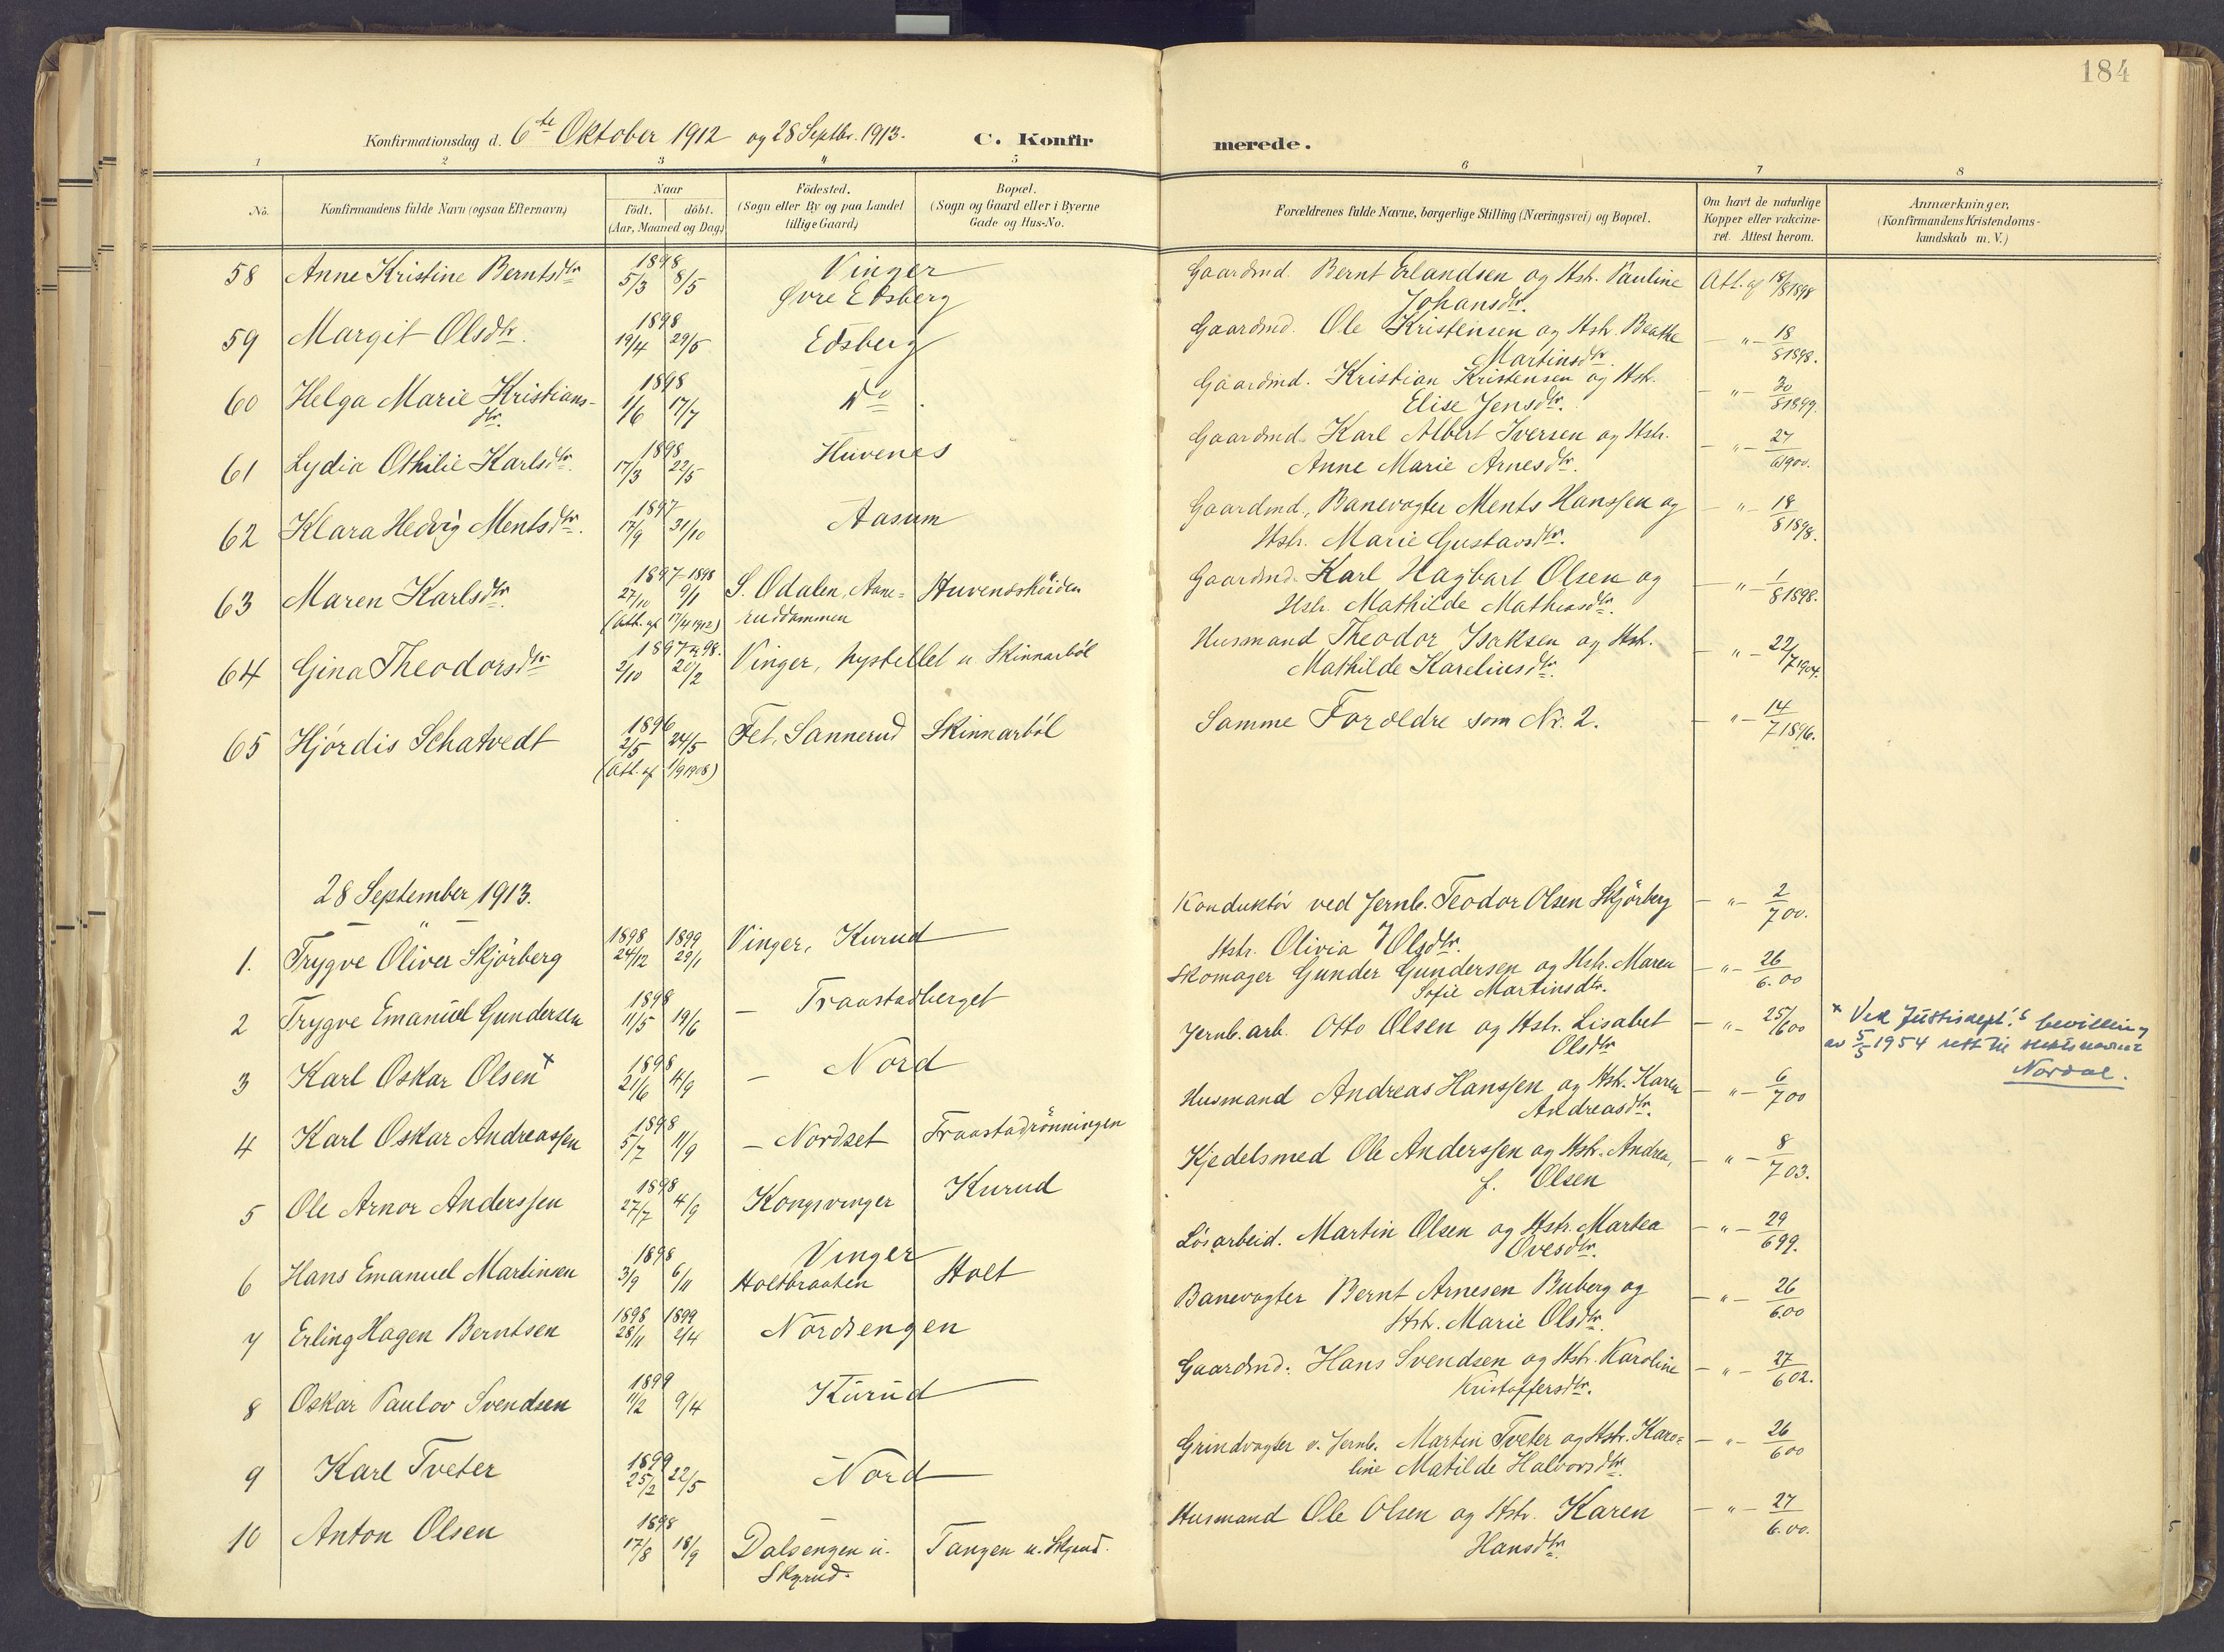 184
Konfirmationsdag d. 6te Oktober 1912 og 28 Septbr. 1913. C. Konfirmerede.
1 2 3 4 5 6 7 8
No. Konfirmandens fulde Navn (ogsaa Efternavn)
Naar født. døbt. (Aar, Maaned og Dag.)
Födested. (Sogn eller By og paa Landet tillige Gaard)
Bopæl. (Sogn og Gaard eller i Byerne Gade og Hus-No.
Forældrenes fulde Navne, borgerlige Stilling (Næringsvei) og Bopæl.
Om havt de naturlige Kopper eller vakcineret. Attest herom.
Anmærkninger, (Konfirmandens Kristendomskundskab m. V.)
58 Anne Kristine Berntsdtr 1898 5/3 8/5 Vinger Øvre Edsberg Gaardmd. Bernt Erlandsen og Hstr. Pauline Johansdtr. Att. af 18/8 1898
59 Margit Olsdtr. 1898 19/4 29/5 Edsberg Gaardmd. Ole Kristensen og Hstr. Beathe Martinsdtr. — " — 18/8 1898.
60 Helga Marie Kristiansdtr. 1898 1/6 17/7 Do. Gaardmd. Kristian Kristensen og Hstr. Elise Jensdtr. — " — 30/8 1899.
61 Lydia Othilie Karlsdtr. 1898 17/3 22/5 Huvenes Gaardmd. Karl Albert Iversen og Hstr. Anne Marie Arnesdtr. — " — 27/6 1900.
62 Klara Hedvig Mentsdtr. 1897 17/9 31/10 Aasum Gaardmd., Banevogter Ments Hanssen og Hstr. Marie Gustavsdtr. — " — 18/8 1898.
63 Maren Karlsdtr. 1897-1898 27/10 9/1 (Att. af 17/4 1912) S. Odalen, Aaneruddammen Huvenesköiden Gaardmd. Karl Hagbart Olsen og Hstr. Mathilde Matheasdtr. — " — 1/8 1898.
64 Gina Theodorsdtr. 1897 & 98. 2/10 20/2 Vinger, nystellet u Skinnarböl Husmand Theodor Isaksen og Hstr. Mathilde Kareliusdtr. — " — 22/7 1904.
65 Hjørdis Schatvedt 1896 2/5 24/5 (Att. af 1/9 1908) Fet, Sannerud Skinnarböl Samme Forældre som Nr. 2. — " — 14/7 1896.
28 September 1913.
1. Trygve Oliver Skjörberg 1898 24/12 1899 29/1 Vinger, Kurud Konduktör ved Jernb. Teodor Olsen Skjörberg Hstr. Olivia Olsdtr. — " — 2/7 00.
2 Trygve Emanuel Gundersen 1898 11/5 19/6 — Traastadberget Skomager Gunder Gundersen og Hstr. Maren Sofie Martinsdtr. — " — 26/6. 00
3 Karl Oskar Olsen x 1898 21/6 4/9 — Nord Jernb. arb. Otto Olsen og Hstr. Lisabet Olsdtr — " — 25/6 00 x Ved Justisdept.s bevilling av 5/5 1954 rett til slektsnavnet Nordal.
4 Karl Oskar Andreassen 1898 5/7 11/9 — Nordset Traastadrönningen Husmand Andreas Hanssen og Hstr. Karen Andreasdtr. — " — 6/7 00
5 Ole Arnor Anderssen 1898 27/7 4/9 Kongsvinger Kurud Kjedelsmed Ole Anderssen og Hstr. Andrea, f. Olsen — " — 8/7 03.
6 Hans Emanuel Martinsen 1898 3/9 6/11 Vinger Holtbraaten Holt Lösarbeid. Martin Olsen og Hstr. Martea Ovesdtr. — " — 29/6 99.
7 Erling Hagen Berntsen 1898 28/11 1899 2/4 Nordsengen Banevogter Bernt Arnesen Buberg og Hstr. Marie Olsdtr. — " — 26/6.00
8 Oskar Paulov Svendsen 1899 11/2 9/4 Kurud Gaardmd. Hans Svendsen og Hstr. Karoline Kristoffersdtr. — " — 27/6 02.
9 Karl Tveter 1899 25/2 22/5 Nord Grindvogter v. Jernb. Martin Tveter og Hstr. Karoline Matilde Halvorsdtr. — " — 26/6 00
10 Anton Olsen 1898 17/8 18/9 Dalsengen u. Skyrud. Tangen u. Skyrud. Husmand Ole Olsen og Hstr. Karen Hansdtr. — " — 27/6. 00.